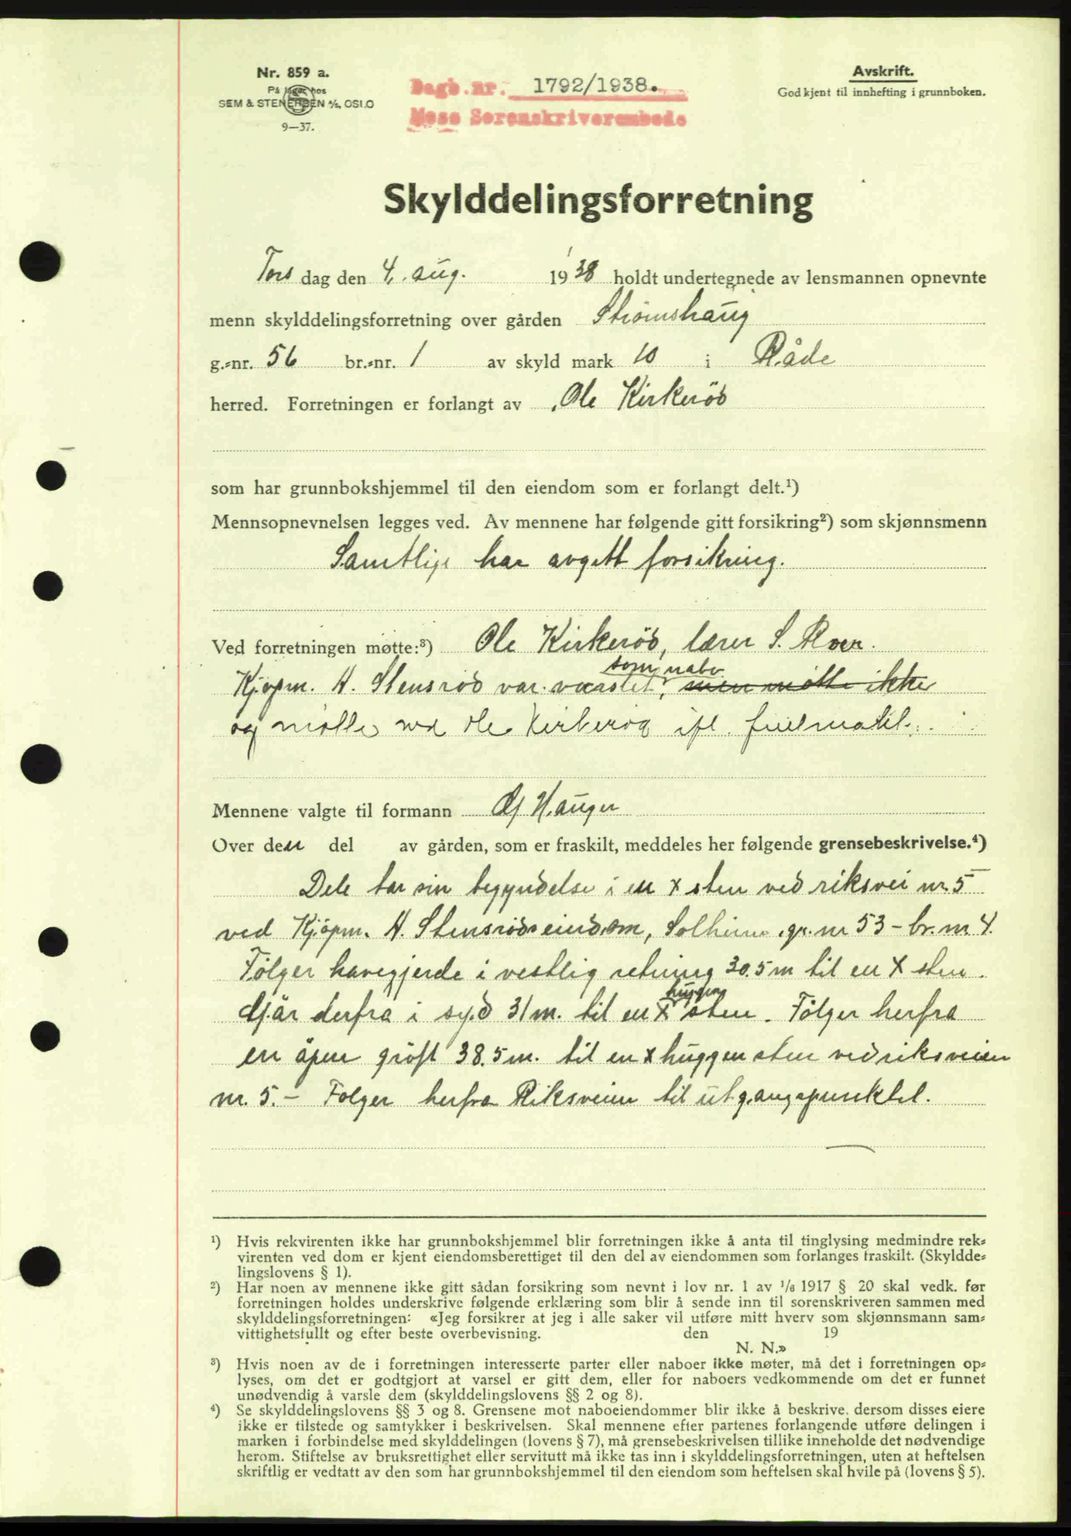 Nr. 859 a.
På lager hos
SEM & STENERSEN A/S, OSLO
9—37.
Dagb.nr. 1792/1938.
Moss Sorenskriverembede
Avskrift.
Godkjent til innhefting i grunnboken.
Skylddelingsforretning
Tors dag den 4. aug. 1938 holdt undertegnede av lensmannen opnevnte
menn skylddelingsforretning over gården Strømshaug
g.-nr. 56 br.-nr. 1 av skyld mark 10 i Råde
herred. Forretningen er forlangt av Ole Kirkeröd
som har grunnbokshjemmel til den eiendom som er forlangt delt.¹)
Mennsopnevnelsen legges ved. Av mennene har følgende gitt forsikring²) som skjønnsmenn
Samtlige har avgitt forsikring.
Ved forretningen møtte:³) Ole Kirkeröd, lærer S. Roer.
som nabo
Kjøpm. H. Stensröd var varslet, men møtte ikke
og møtte ved Ole Kirkeröd ifl. fullmakt.
Mennene valgte til formann Hauger
Over den del av gården, som er fraskilt, meddeles her følgende grensebeskrivelse.⁴)
Dele tar sin begyndelse i en x sten ved riksvei nr. 5
ved Kjøpm. H. Stensröds eiendom, Solheim gr. nr 53 – br. nr 4.
Følger havegjerde i vestlig retning 30.5 m til en x sten.
huggen
Går derfra i syd 31 m. til en x sten. Følger herfra
en åpen gröft 38.5 m. til en x huggen sten ved riksveien
nr. 5. – Følger herfra Riksveien til utgangspunktet.
¹) Hvis rekvirenten ikke har grunnbokshjemmel blir forretningen ikke å anta til tinglysing medmindre rek-
virenten ved dom er kjent eiendomsberettiget til den del av eiendommen som forlanges fraskilt. (Skyldde-
lingslovens § 1).
²) Har noen av mennene ikke gitt sådan forsikring som nevnt i lov nr. 1 av 1/6 1917 § 20 skal vedk. før
forretningen holdes underskrive følgende erklæring som blir å sende inn til sorenskriveren sammen med
skylddelingsforretningen: «Jeg forsikrer at jeg i alle saker vil utføre mitt hverv som skjønnsmann sam-
vittighetsfullt og efter beste overbevisning. den 19
N. N.»
³) Hvis noen av de i forretningen interesserte parter eller naboer ikke møter, må det i forretningen op-
lyses, om det er godtgjort at varsel er gitt dem, eller for naboers vedkommende om det er funnet
unødvendig å varsle dem (skylddelingslovens §§ 2 og 8).
⁴) Se skylddelingslovens §§ 3 og 8. Grensene mot naboeiendommer blir ikke å beskrive. dersom disses eiere
ikke er tilstede og samtykker i beskrivelsen. Skal mennene efter partenes forlangende utføre delingen i
marken i forbindelse med skylddelingen (lovens § 7), må grensebeskrivelsen tillike inneholde det nødvendige
herom. Stiftelse av bruksrettighet eller servitutt må ikke tas inn i skylddelingsforretningen, uten at heftelsen
skriftlig er vedtatt av den som har grunnbokshjemmel til den eiendom som heftelsen skal hvile på (lovens § 5).